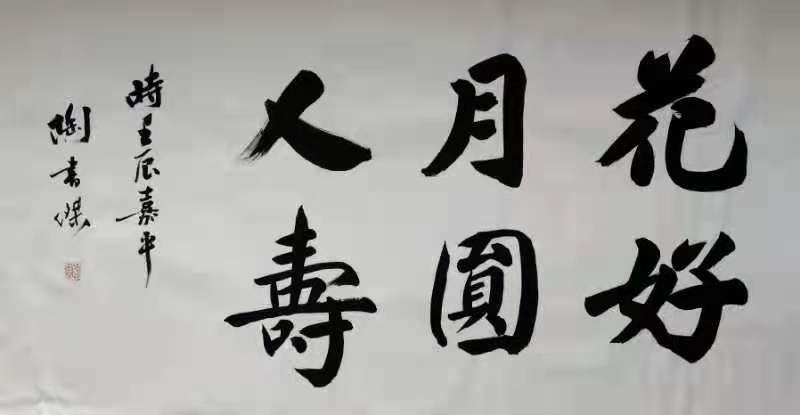 花好
月圓
人壽
時壬辰嘉平
陶書傑